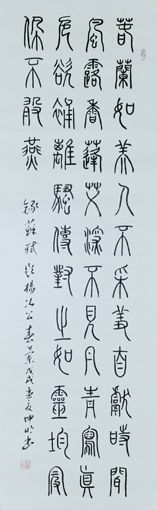 春蘭如美人不采羞自獻時聞
風露香蓬艾深不見丹青寫真
色欲補離騷傳對之如靈均冠
佩不敢燕
錄蘇軾題楊次公春蘭戊戌